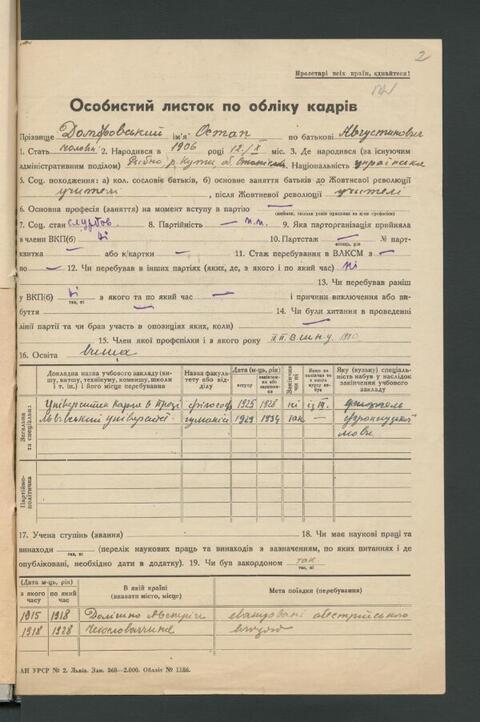 2
Пролетарі всіх країн, єднайтеся!
Особистий листок по обліку кадрів
Прізвище Домбровський ім'я Остап по батькові Августинович
1. Стать чолов. 2. Народився в 1906 році 12/X міс. 3. Де народився (за існуючим
адміністративним поділом) р. Кути, об. 4. Національність українська
5. Соц. походження: а) кол. сословіє батьків, б) основне заняття батьків до Жовтневої революції
учителі, після Жовтневої революції учителі
6. Основна професія (заняття) на момент вступу в партію —
7. Соц. стан службов. 8. Партійність п.п. 9. Яка парторганізація прийняла
в члени ВКП(б) ні 10. Партстаж — № парт-
квитка — або к/картки — 11. Стаж перебування в ВЛКСМ з —
по — 12. Чи перебував в інших партіях (яких, де, з якого і по який час) ні
13. Чи перебував раніш
у ВКП(б) ні з якого та по який час — і причини виключення або ви-
буття — 14. Чи були хитання в проведенні
лінії партії та чи брав участь в опозиціях яких, коли) —
15. Член якої профспілки і з якого року
16. Освіта висша
Загальна та спеціальна
Докладна назва учбового закладу (ви-
шу, втшу, технікуму, комвишу, школи
і т. ін.) і його місце перебування
Назва факуль-
тету або від-
ділу
Дата (м-ць, рік)
вступу
Закінчив чи ні
Яку (вузьку) спеціаль-
ність набув у наслідок
закінчення учбового
закладу
Університет Карла в Празі філософ. 1925 1928 ні із III. учитель
Львівський університет гуманіст. 1929 1934 так — французької
мови
Партійно-
політична
17. Учена ступінь (звання) 18. Чи має наукові праці та
винаходи (перелік наукових праць та винаходів з зазначенням, по яких питаннях і де
опубліковані, необхідно дати в додатку). 19. Чи був закордоном так
так, ні
(Дата м-ць, рік)
з якого
часу
по який
час
В якій країні
(вказати місто, місце)
Мета поїздки (перебування)
1915 1918 Долішна Австрія евакуовані австрійською
1918 1928 Чехословаччина владою
АН УРСР № 2. Львів. Зам. 368—2.000. Обліт № 1186.